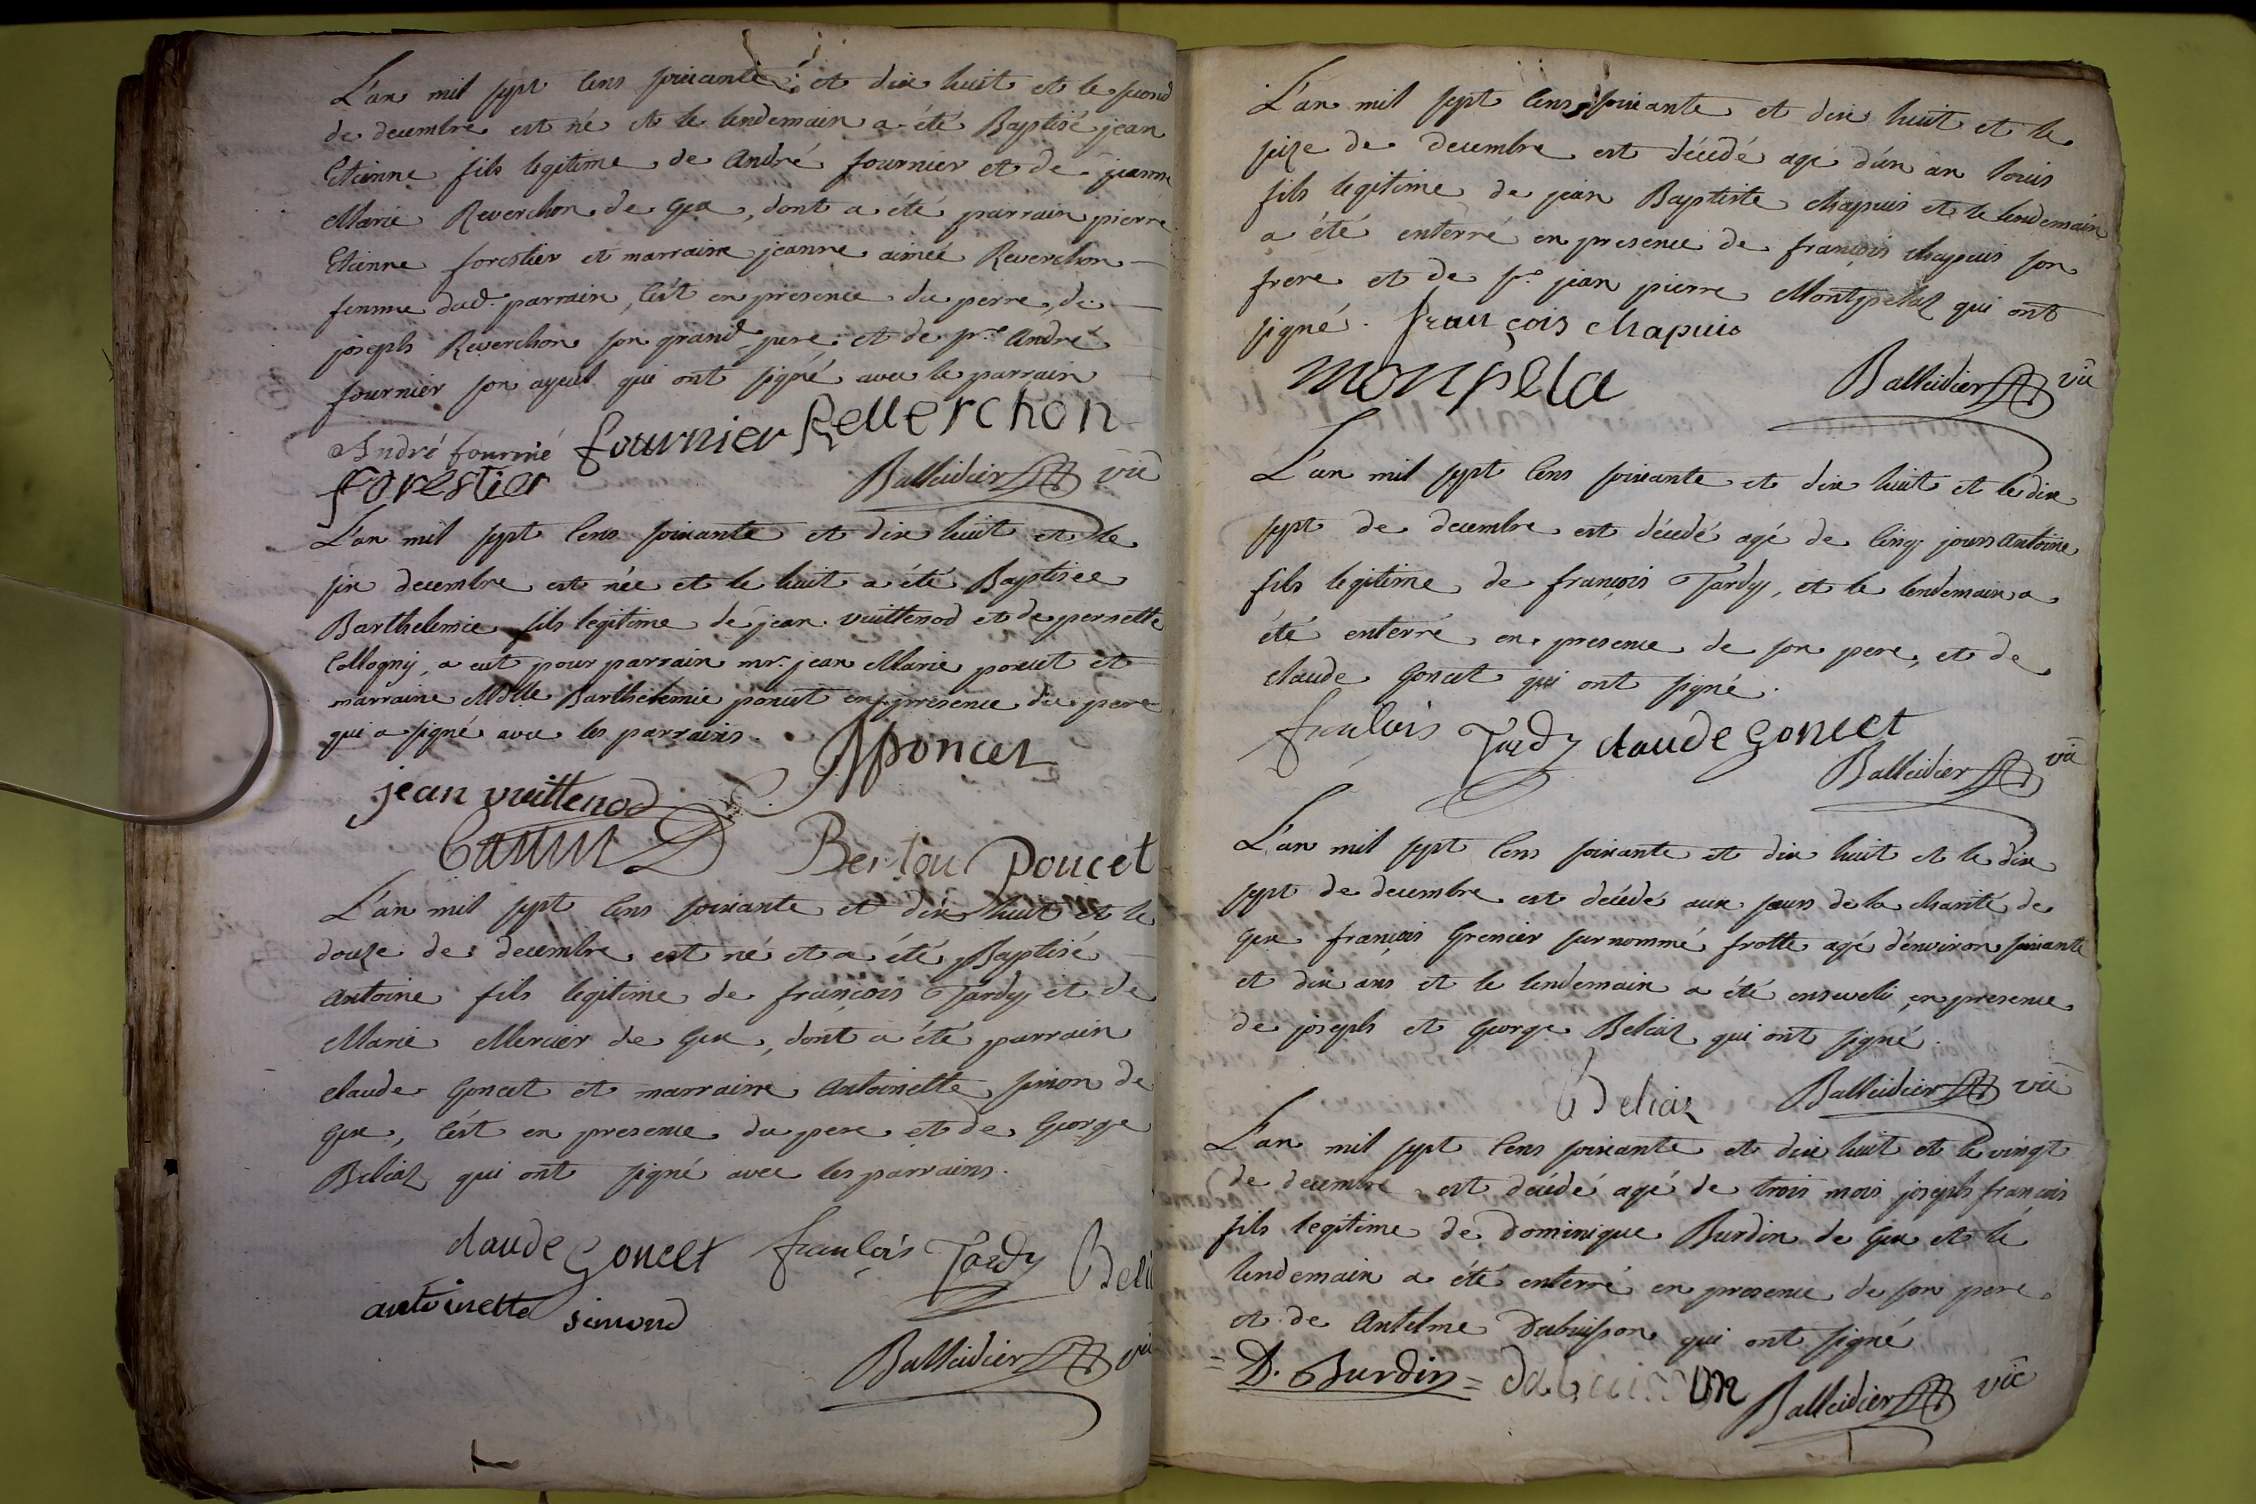 L'an mil sept cens soixante et dix huit et le second
de decembre est né et le lendemain a été Baptisé jean
Etienne fils legitime de André fournier et de jeanne
Marie Reverchon de Gex, dont a été parrain pierre
Etienne forestier et marraine jeanne aimée Reverchon
femme dud. parrain, c'est en presence du perre, de
joseph Reverchon son grand pere et de pre André
fournier son ayeul qui ont signé avec le parrain
André fournié fournier Reverchon
forestier Balleidier vic
L'an mil sept cens soixante et dix huit et le
six decembre est née et le huit a été Baptisee
Barthelemie fils legitime de jean vuittenod et de pernette
Collogny, a eut pour parrain mr. jean Marie poncet et
marraine Mdlle Barthelemie poncet en presence du pere
qui a signé avec les parrains.
jean vuittenod poncet
poncet
L'an mil sept cens soixante et dix huit et le
douze de decembre est né et a été Baptisé
Antoine fils legitime de françois Tardy et de
Marie Mercier de Gex, dont a été parrain
claude Goncet et marraine Antoinette simon de
Gex, c'est en presence du pere et de George
Beliaz qui ont signé avec les parrains.
claude Goncet françois Tardy Beli
antoinette simond
Balleidier vic
L'an mil sept cens soixante et dix huit et le
seize de decembre est décédé agé d'un an louis
fils legitime de jean Baptiste chapuis et le lendemain
a été enterré en presence de françois chapuis son
frere et de sr. jean pierre Montpelaz qui ont
signé. françois chapuis
monpela Balleidier vic
L'an mil sept cens soixante et dix huit et le dix
sept de decembre est décédé agé de cinq jours Antoine
fils legitime de françois Tardy, et le lendemain a
été enterré en presence de son pere, et de
claude Goncet qui ont signé.
françois Tardy claude Goncet
Balleidier vic
L'an mil sept cens soixante et dix huit et le dix
sept de decembre est décédé aux sœurs de la charité de
Gex françois Grenier surnommé frotte agé d'environ soixante
et dix ans et le lendemain a été enseveli en presence
de joseph et George Beliaz qui ont signé.
Beliaz Balleidier vic
L'an mil sept cens soixante et dix huit et le vingt
de decembre est décédé agé de trois mois joseph françois
fils legitime de Dominique Burdin de Gex et le
lendemain a été enterré en presence de son pere
et de Antelme Dubuisson qui ont signé
= D. Burdin = dubuisson Balleidier vic